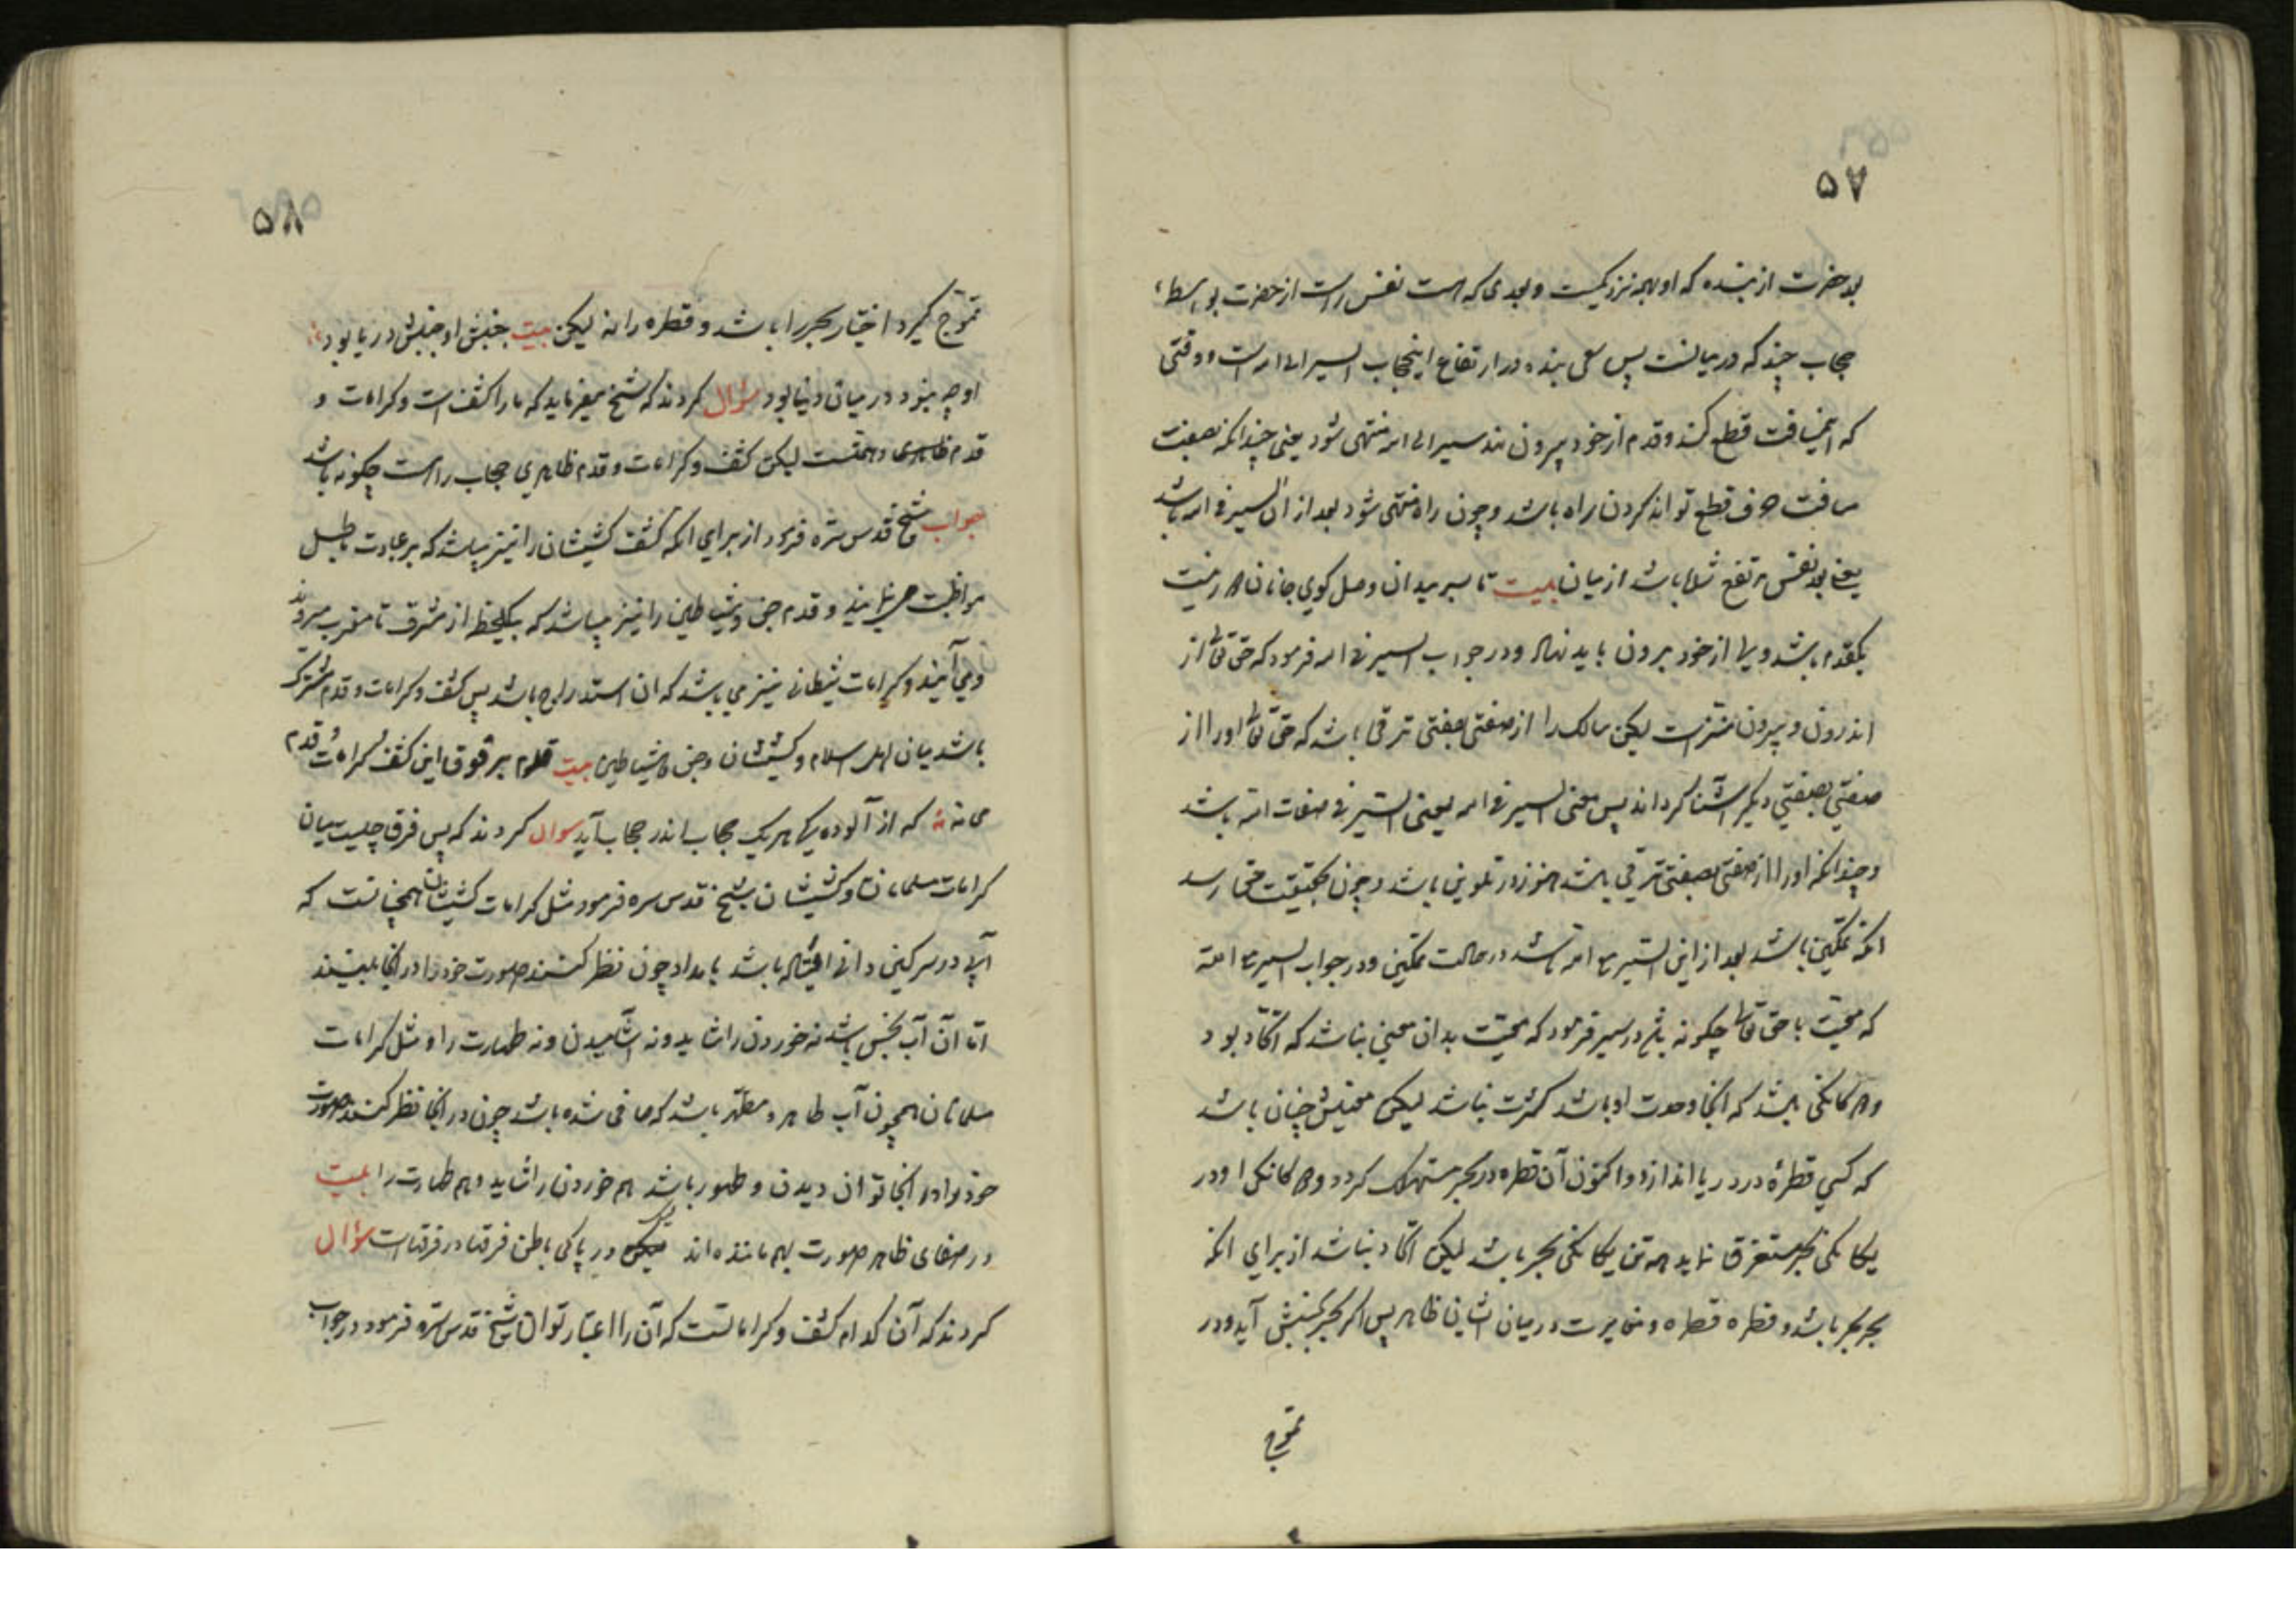 ۵۷
بعد حضرت از بنده که او بهمه نزدیکست و بعدی که هست نفس راست از حضرت بواسطهٔ
حجاب چند که درمیانست پس سعی بنده در ارتفاع اینحجاب السیر الی الله است و وقتی
که اینمسافت قطع کند و قدم از خود بیرون نهد سیر الی الله منتهی شود یعنی چندانکه بصفت
مسافت قطع تواند کردن راه باشد و چون راه منتهی شود بعد از ان السیر فی الله باشد
یعنی بعد نفس مرتفع شده باشد از میان بیت تا سر میدان وصل کوی جانان هر نیت
یکقدم باشد ولی از خود برون باید نهاد و در جواب السیر فی الله فرمود که حق تعالی از
اندرون و بیرون منزه است لیکن سالک را از صفتی بصفتی ترقی باشد که حق تعالی او را از
صفتی بصفتی دیگر آشنا گرداند پس معنی السیر فی الله یعنی السیر فی صفات الله باشد
و چندانکه او را از صفتی بصفتی ترقی باشد هنوز در تلوین باشد و چون بحقیقت حق رسد
انکه تمکین باشد بعد از این السیر مع الله باشد در حالت تمکین و در جواب السیر مع الله
که معیت با حق تعالی چگونه باشد در سیر فرمود که معیت بدان معنی نباشد که اتحاد بود
و هر کانکی باشد که انجا وحدت او باشد کثرت نباشد لیکن معیتش چنان باشد
که کسی قطرهٔ در دریا اندازد و اکنون آن قطره در بحر مستهلک گردد و هر کانکی او در
یکانکی بحر مستغرق نماید همه تن یکانکی بحر باشد لیکن اتحاد نباشد از برای انکه
بحر بحر باشد و قطره قطره و مغایرت در میان ایشان ظاهر پس اگر بحر بجنبش آید و در
تموج
۵۸
تموج گیرد اختیار بحر را باشد و قطره را نه لیکن بیت جنبش او جنبش دریا بود
او چه میزد در میان دنیا بود سؤال کردند که شیخ میفرماید که ما را کشف است و کرامات و
قدم ظاهری و همتست لیکن کشف و کرامات و قدم ظاهری حجاب راهست چگونه باشد
جواب شیخ قدس سره فرمود از برای انکه کشف کشیشان را نیز میباشد که بر عبادت باطل
مواظبت می نمایند و قدم جن و شیاطین را نیز میباشد که بیکلحظه از مشرق تا مغرب میروند
و می آیند و کرامات شیطانی نیز می باشد که ان استدراج باشد پس کشف و کرامات و قدم مشترک
باشد میان اهل اسلام و کشیشان و جن و شیاطین بیت قدم بر فوق این کشف و کرامات قدم
می نه که از آلوده یکی هر یک حجاب اندر حجاب آید سوال کردند که پس فرق چیست میان
کرامات مسلمانان و کشیشان شیخ قدس سره فرمود مثل کرامات کشیشان همچنانست که
آبی در سرگین دانی باشد بامداد چون نظر کنند صورت خود را در انجا ببینند
اما آن آب نجس باشد نه خوردن را شاید و نه آشامیدن و نه طهارت را و مثل کرامات
مسلمانان همچون آب طاهر و مطهر باشد که صافی شده باشد چون در انجا نظر کنند صورت
خود را در انجا توان دیدن و طهور باشد هم خوردن را شاید و هم طهارت را بیت
در صفای ظاهر صورت بهم مانندهاند لیک در پاکی باطن فرقها در فرقهاست سؤال
کردند که آن کدام کشف و کراماتست که آن را اعتبار توان شیخ قدس سره فرمود در جواب